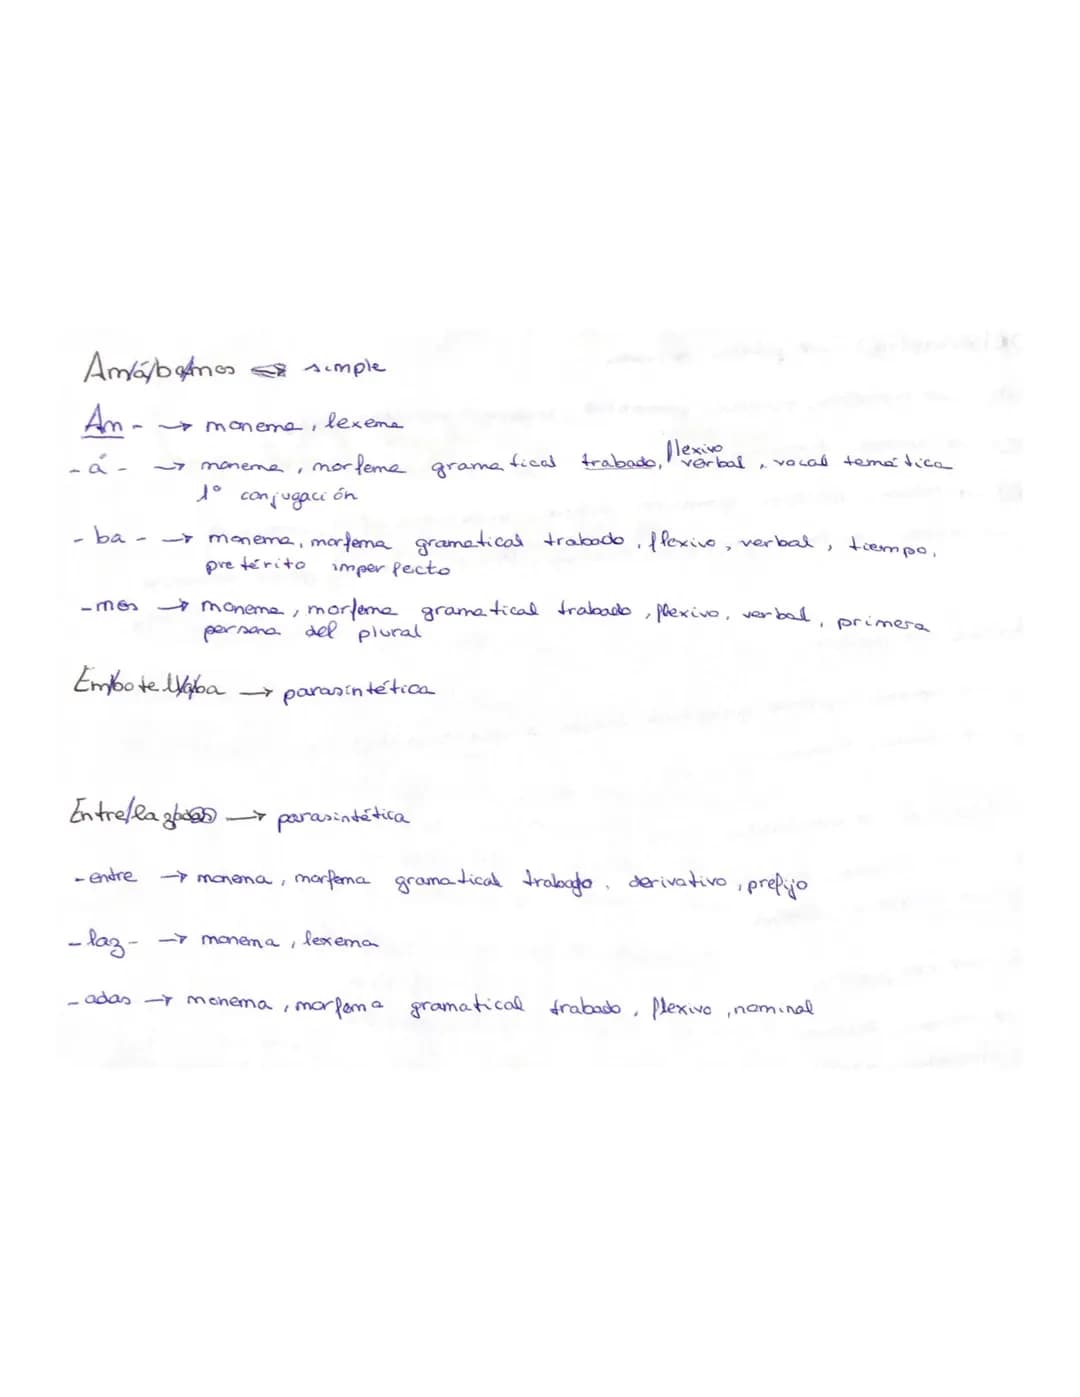 Am/á/ba/mos simple
Am- → monema, lexema
flexivo
-á- → monema, morfema gramatical trabado, verbal, vocal temática
1º conjugación
-ba- → monema, morfema gramatical trabado, flexivo, verbal, tiempo,
pretérito imperfecto
-mos → monema, morfema gramatical trabado, flexivo, verbal, primera
persona del plural
Em/botell/aba → parasintética
Entre/laz/adas → parasintética
-entre → monema, morfema gramatical trabado, derivativo, prefijo
-laz- → monema, lexema
-adas → monema, morfema gramatical trabado, flexivo, nominal